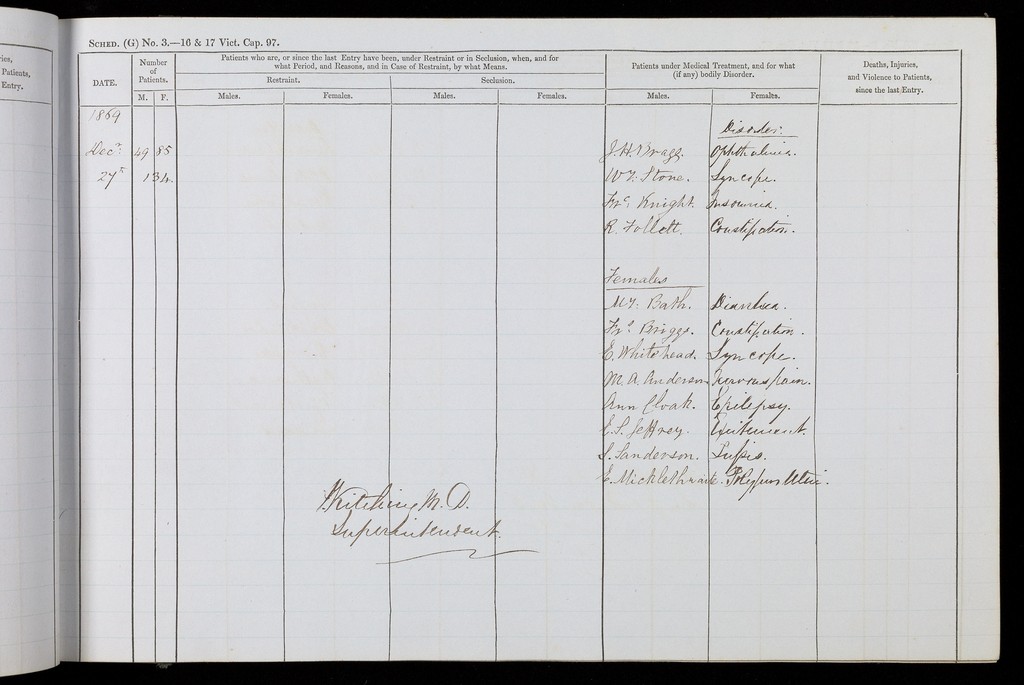 ries,
Patients,
Entry.
SCHED. (G) No. 3.—16 & 17 Vict. Cap. 97.
DATE.
Number
of
Patients.
M. F.
Patients who are, or since the last Entry have been, under Restraint or in Seclusion, when, and for
what Period, and Reasons, and in Case of Restraint, by what Means.
Restraint. Seclusion.
Males. Females. Males. Females.
Patients under Medical Treatment, and for what
(if any) bodily Disorder.
Males. Females.
Deaths, Injuries,
and Violence to Patients,
since the last Entry.
1869
Disorder.
Decr. 49 85 J. H. Bragg. Ophthalmia.
27th 134. Wm. Stone. Syncope.
Frc. Knight. Insomnia.
R. Follett. Constipation.
Females
My. Bath. Diarrhœa.
Frs. Briggs. Constipation.
E. Whitehead. Syncope.
M. A. Anderson Nervous pain.
Ann Cloak. Epilepsy.
E. S. Jeffrey. Excitement.
S. Sanderson. Lupus.
E. Micklethwaite. Polypus Uteri.
J. Kitching M. D.
Superintendent.